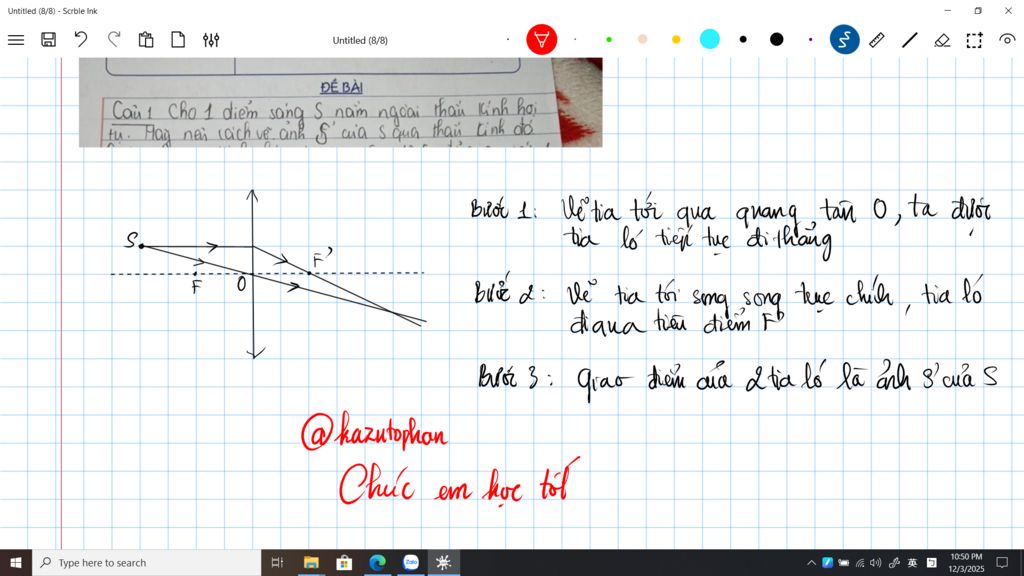 Untitled (8/8) - Scrble Ink
Untitled (8/8)
ĐỀ BÀI
Câu 1 Cho 1 điểm sáng S nằm ngoài thấu kính hội
tụ. Hãy nêu cách vẽ ảnh S' của S qua thấu kính đó.
S
F
O
F'
Bước 1: Vẽ tia tới qua quang tâm O, ta được
tia ló tiếp tục đi thẳng
Bước 2: Vẽ tia tới song song trục chính, tia ló
đi qua tiêu điểm F'
Bước 3: Giao điểm của 2 tia ló là ảnh S' của S
@kazutophan
Chúc em học tốt
Type here to search
Zalo
英
10:50 PM
12/3/2025